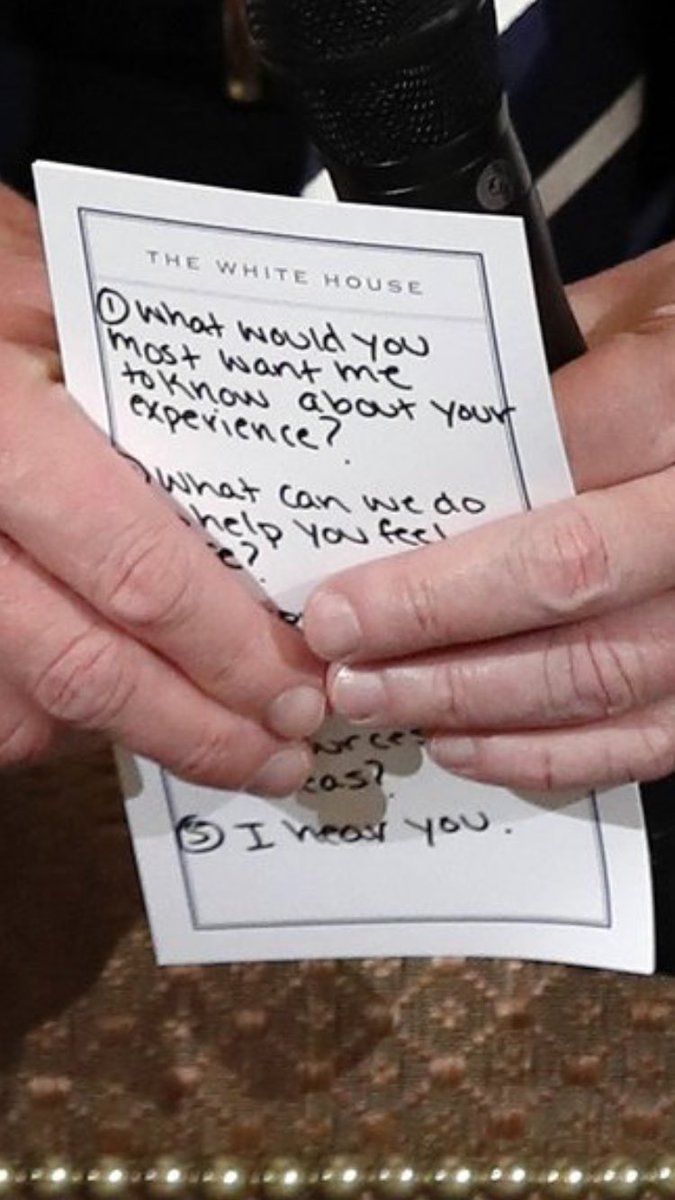 THE WHITE HOUSE
① What would you
most want me
to know about your
experience?
What can we do
help you feel
5 I hear you.